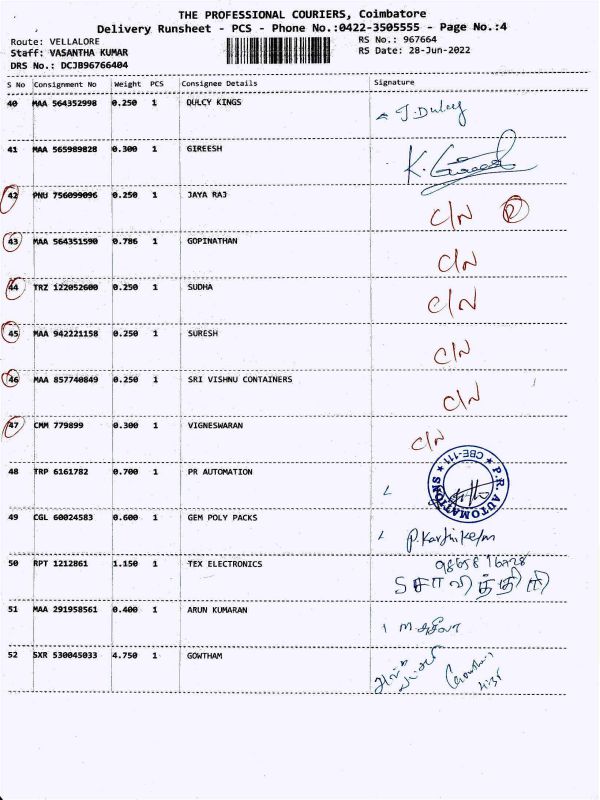 THE PROFESSIONAL COURIERS, Coimbatore
Delivery Runsheet - PCS - Phone No.:0422-3505555 - Page No.:4
Route: VELLALORE
Staff: VASANTHA KUMAR
DRS No.: DCJB96766404
RS No.: 967664
RS Date: 28-Jun-2022
S No Consignment No Weight PCS Consignee Details Signature
40 MAA 564352998 0.250 1 DULCY KINGS J. Dulcy
41 MAA 565989828 0.300 1 GIREESH
42 PNU 756099096 0.250 1 JAYA RAJ C/N R
43 MAA 564351590 0.786 1 GOPINATHAN C/N
44 TRZ 122052600 0.250 1 SUDHA C/N
45 MAA 942221158 0.250 1 SURESH C/N
46 MAA 857740849 0.250 1 SRI VISHNU CONTAINERS C/N
47 CMM 779899 0.300 1 VIGNESWARAN C/N
48 TRP 6161782 0.700 1 PR AUTOMATION P.R. AUTOMATIONS CBE-111
49 CGL 60024583 0.600 1 GEM POLY PACKS
50 RPT 1212861 1.150 1 TEX ELECTRONICS 98658 16728
51 MAA 291958561 0.400 1 ARUN KUMARAN
52 SXR 530045033 4.750 1 GOWTHAM